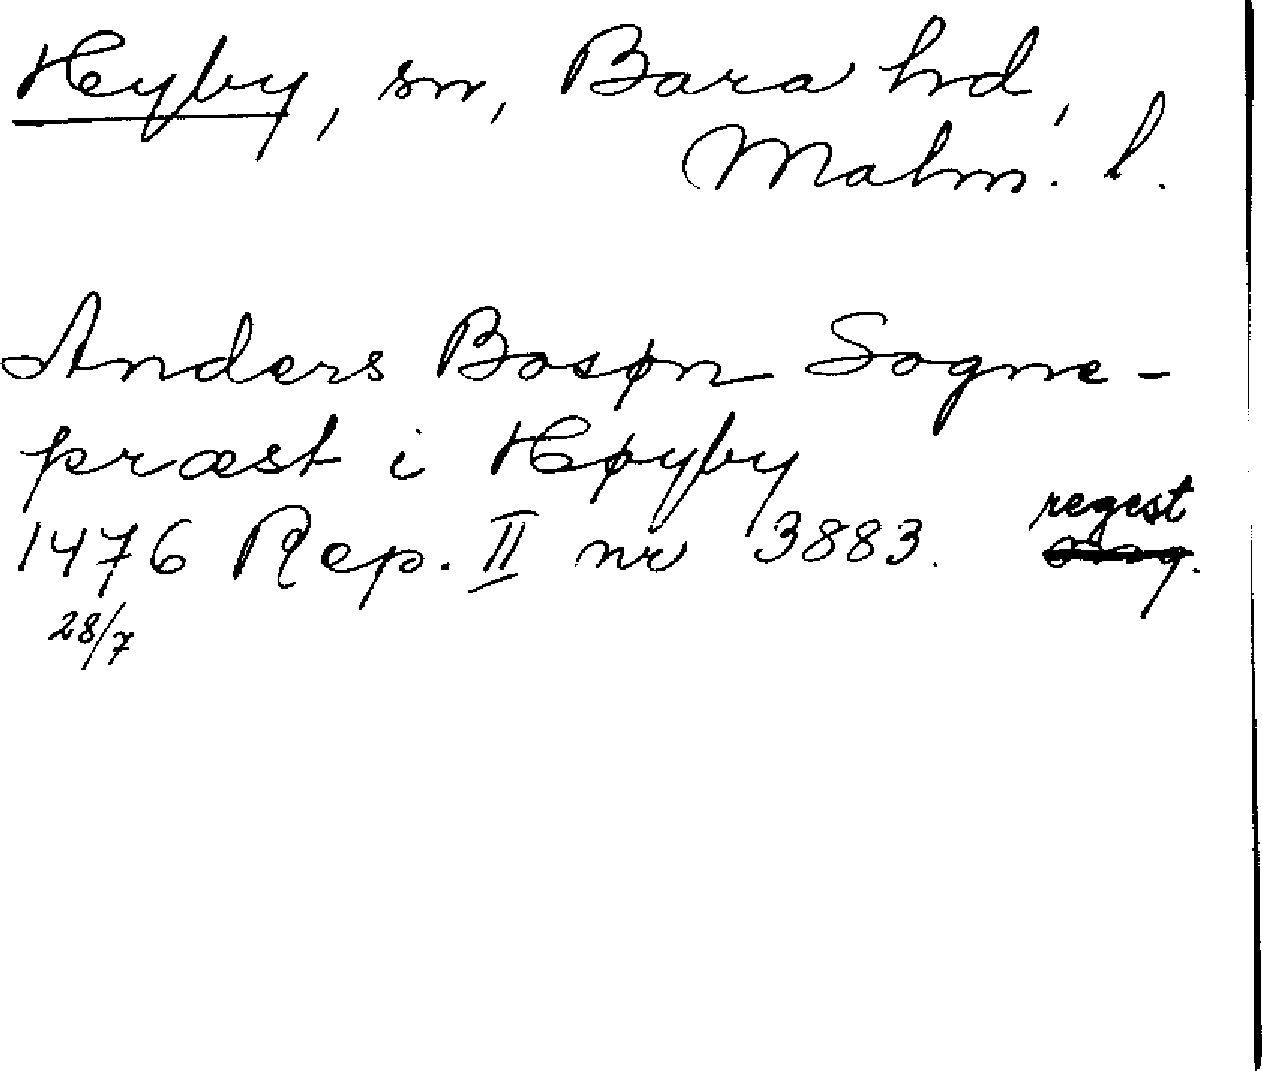 Hyby, sn, Bara hd,
Malm. l.
Anders Bosøn Sogne-
præst i Høyby
regest
1476 Rep. II nr 3883.
28/7